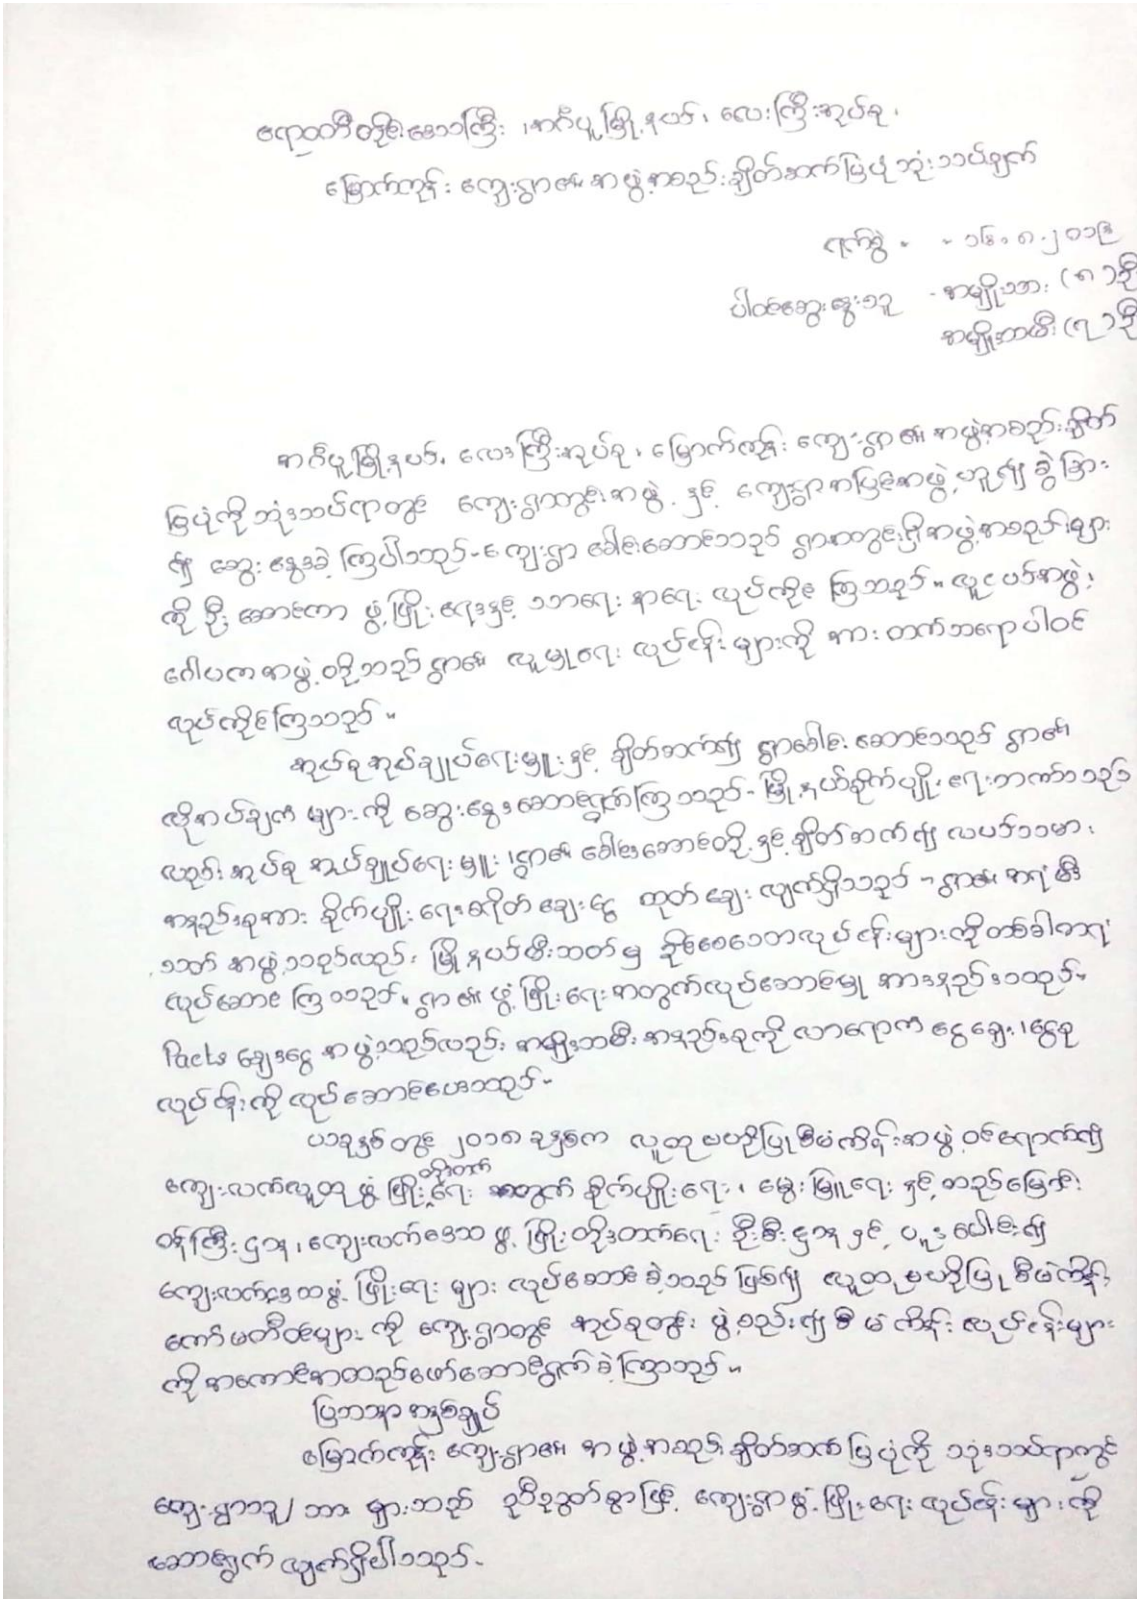 ဧရာဝတီတိုင်းဒေသကြီး ၊ အင်္ဂပူမြို့နယ်၊ လေးကြီးအုပ်စု ၊
မြောက်ကုန်း ကျေးရွာ၏ အဖွဲ့အစည်းချိတ်ဆက်ပြပုံသုံးသပ်ချက်
ရက်စွဲ - - ၁၆.၈.၂၀၁၉
ပါဝင်ဆွေးနွေးသူ - အမျိုးသား (၈) ဦး
အမျိုးသမီး (၇) ဦး
အင်္ဂပူမြို့နယ်၊ လေးကြီးအုပ်စု ၊ မြောက်ကုန်း ကျေးရွာ၏ အဖွဲ့အစည်းချိတ်
ပြပုံကို သုံးသပ်ရာတွင် ကျေးရွာတွင်းအဖွဲ့ နှင့် ကျေးရွာအပြင်အဖွဲ့ဟူ၍ ခွဲခြား
၍ ဆွေးနွေးခဲ့ကြပါသည်- ကျေးရွာ ခေါင်းဆောင်သည် ရွာအတွင်းရှိအဖွဲ့အစည်းများ
ကို ဦးဆောင်ကာ ဖွံ့ဖြိုးရေးနှင့် သာရေး နာရေး လုပ်ကိုင်ကြသည်။ လူငယ်အဖွဲ့၊
ဂေါပကအဖွဲ့ တို့သည် ရွာ၏ လူမှုရေး လုပ်ငန်းများကို အားတက်သရောပါဝင်
လုပ်ကိုင်ကြသည်။
အုပ်စုအုပ်ချုပ်ရေးမှူးနှင့် ချိတ်ဆက်၍ ရွာခေါင်းဆောင်သည် ရွာ၏
လိုအပ်ချက်များကို ဆွေးနွေးဆောင်ရွက်ကြသည်- မြို့နယ်စိုက်ပျိုးရေးဘဏ်သည်
လည်း အုပ်စု အုပ်ချုပ်ရေးမှူး ၊ရွာ၏ ခေါင်းဆောင်တို့နှင့်ချိတ်ဆက်၍ လယ်သမား
အနည်းစုအား စိုက်ပျိုးရေးစရိတ်ချေးငွေ ထုတ်ချေးလျက်ရှိသည် - ရွာ၏ အရံမီး
သတ်အဖွဲ့သည်လည်း မြို့နယ်မီးသတ်မှ ခိုင်းစေသောလုပ်ငန်းများကိုတစ်ခါတရံ
လုပ်ဆောင်ကြသည်။ ရွာ၏ ဖွံ့ဖြိုးရေးအတွက်လုပ်ဆောင်မှု အားနည်းသည်။
Pacts ချေးငွေအဖွဲ့သည်လည်း အမျိုးသမီး အနည်းစုကို လာရောက် ငွေချေး၊ ငွေစု
လုပ်ငန်းကို လုပ်ဆောင်ပေးသည်-
ယခုနှစ်တွင် ၂၀၁၈ ခုနှစ်က လူထုဗဟိုပြုစီမံကိန်းအဖွဲ့ ဝင်ရောက်၍
ကျေးလက်လူထု ဖွံ့ဖြိုးတိုးတက်ရေး အတွက် စိုက်ပျိုးရေး၊ မွေးမြူရေးနှင့် ဆည်မြောင်း
ဝန်ကြီးဌာန ၊ကျေးလက်ဒေသ ဖွံ့ဖြိုးတိုးတက်ရေး ဦးစီးဌာနနှင့် ပူးပေါင်း၍
ကျေးလက်ဒေသဖွံ့ဖြိုးရေးများ လုပ်ဆောင်ခဲ့သည် ဖြစ်၍ လူထုဗဟိုပြုစီမံကိန်း
ကော်မတီဝင်များကို ကျေးရွာတွင် အုပ်စုတွင်း ဖွဲ့စည်း၍ စီမံကိန်းလုပ်ငန်းများ
ကို အကောင်အထည်ဖော်ဆောင်ရွက်ခဲ့ကြသည်။
ပြဿနာအနှစ်ချုပ်
မြောက်ကုန်း ကျေးရွာ၏ အဖွဲ့အစည်းချိတ်ဆက်ပြပုံကို သုံးသပ်ရာတွင်
ကျေးရွာသူ/သားများသည် စုပေါင်းစွာဖြင့် ကျေးရွာဖွံ့ဖြိုးရေး လုပ်ငန်းများကို
ဆောင်ရွက်လျက်ရှိပါသည်-